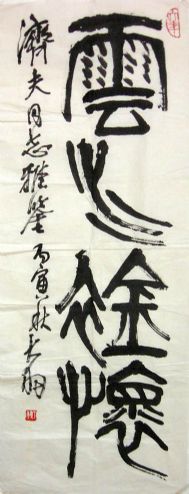 雲水䘳懷
濟夫同志雅鑒 丙寅秋